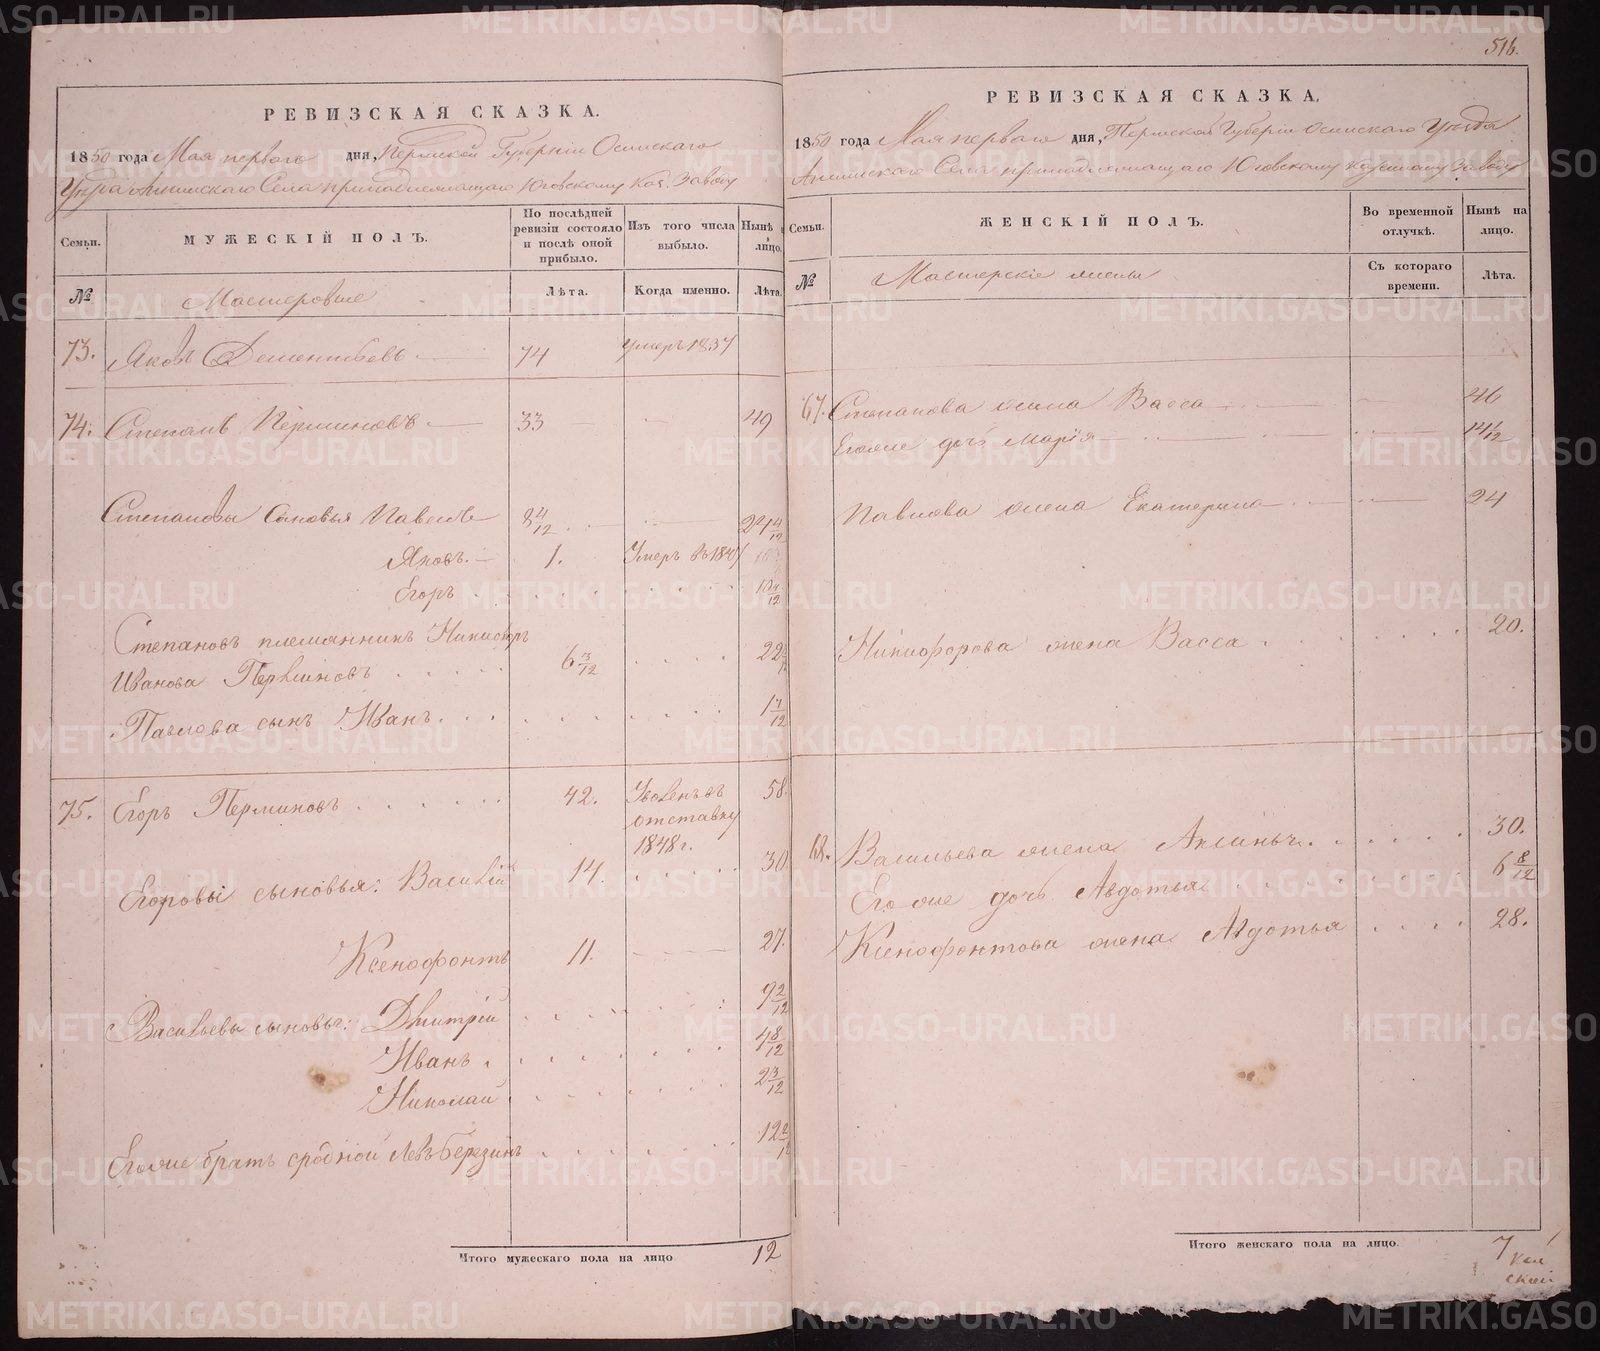 516.
РЕВИЗСКАЯ СКАЗКА.
1850 года Мая перваго дня, Пермской Губерніи Осинскаго
Уезда Аннинскаго Села принадлежащаго Юговскому Каз. Заводу
Семьи.
МУЖЕСКІЙ ПОЛЪ.
По послѣдней ревизіи состояло и послѣ оной прибыло.
Изъ того числа выбыло.
Нынѣ на лицо.
№
Мастеровые
Лѣта.
Когда именно.
Лѣта.
73. Яковъ Дементьевъ 74 умеръ 1837
74. Степанъ Перминовъ 33 49
Степановы Сыновья Павелъ 8 4/12 24 4/12
Яковъ. 1. Умеръ въ
Егоръ 10
Степановъ племянникъ Никифоръ
Ивановъ Перминовъ 6 3/12 22
Павлова сынъ Иванъ 1 7/12
75. Егоръ Перминовъ 42. Уволенъ въ 58.
отставку
1848 г.
Егоровы сыновья: Василій 14. 30
Ксенофонтъ 11. 27.
Васильевы сыновья: Дмитрій 9 2/12
Иванъ 4 8/12
Николай 2 3/12
Егоже братъ сродной Левъ Березинъ 12
Итого мужескаго пола на лицо 12
РЕВИЗСКАЯ СКАЗКА.
1850 года Мая перваго дня, Пермской Губерніи Осинскаго Уезда
Аннинскаго Села принадлежащаго Юговскому казенному Заводу
Семьи.
ЖЕНСКІЙ ПОЛЪ.
Во временной отлучкѣ.
Нынѣ на лицо.
№
Мастерскіе жены
Съ котораго времени.
Лѣта.
67. Степанова жена Васса 46
Егоже дочь Марія 14 1/12
Павлова жена Екатерина 24
Никифорова жена Васса 20.
68. Васильева жена Аксинья 30.
Егоже дочь Авдотья 6 8/12
Ксенофонтова жена Авдотья 28.
Итого женскаго пола на лицо. 7
METRIKI.GASO-URAL.RU